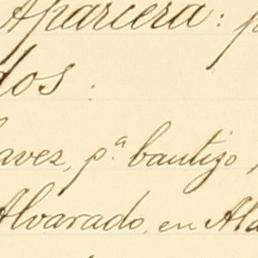 Aparcera: p
dos:
avez, pª bautizo
Alvarado, en Ala